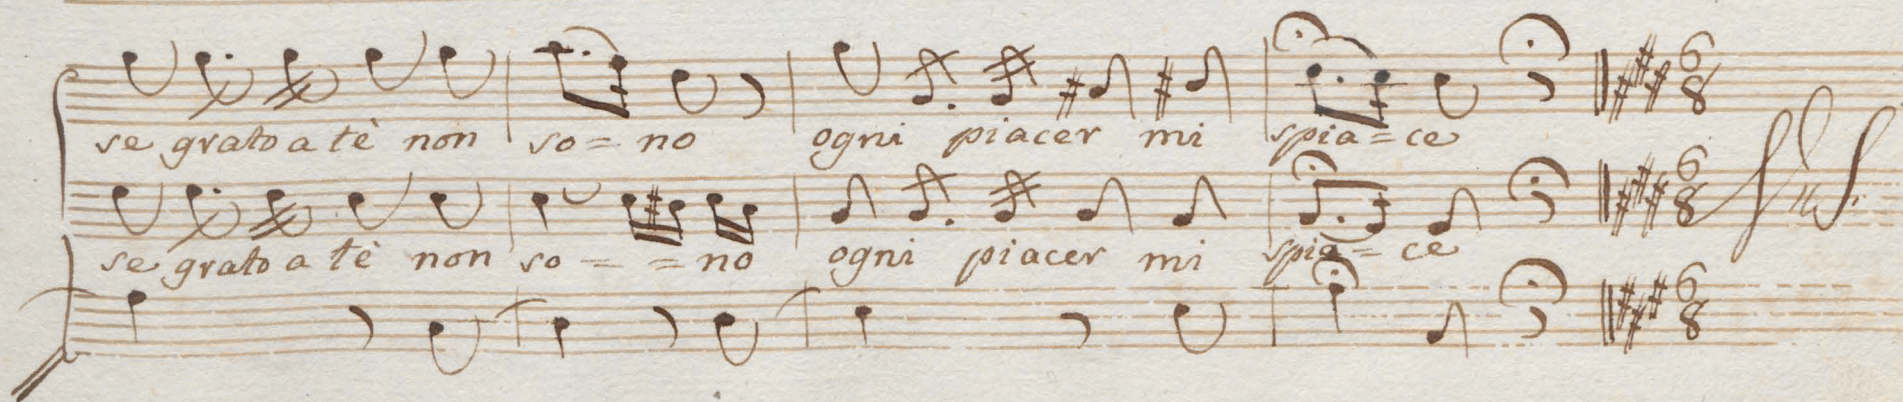 se grato a tè non so = no ogni piacer mi spia = ce
se grato a tè non so = = no ogni piacer mi spia = ce